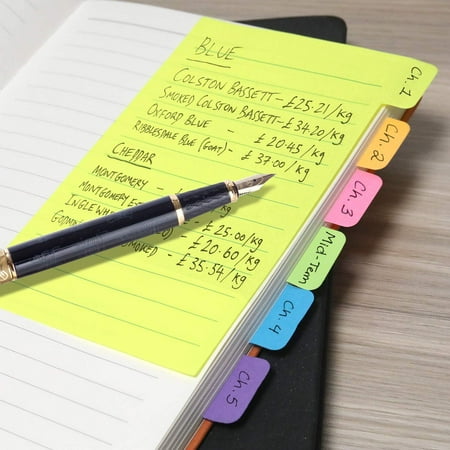 BLUE
COLSTON BASSETT - £25.21/kg
SMOKED COLSTON BASSETT - £34.20/kg
OXFORD BLUE - £20.45/kg
RIBBLESDALE BLUE (GOAT) - £37.00/kg
CHEDDAR
MONTGOMERY -
MONTGOMERY - £25.00/kg
- £20.60/kg
SMOKED - £35.54/kg
Ch.1
Ch.2
Ch.3
Mid-Term
Ch.4
Ch.5